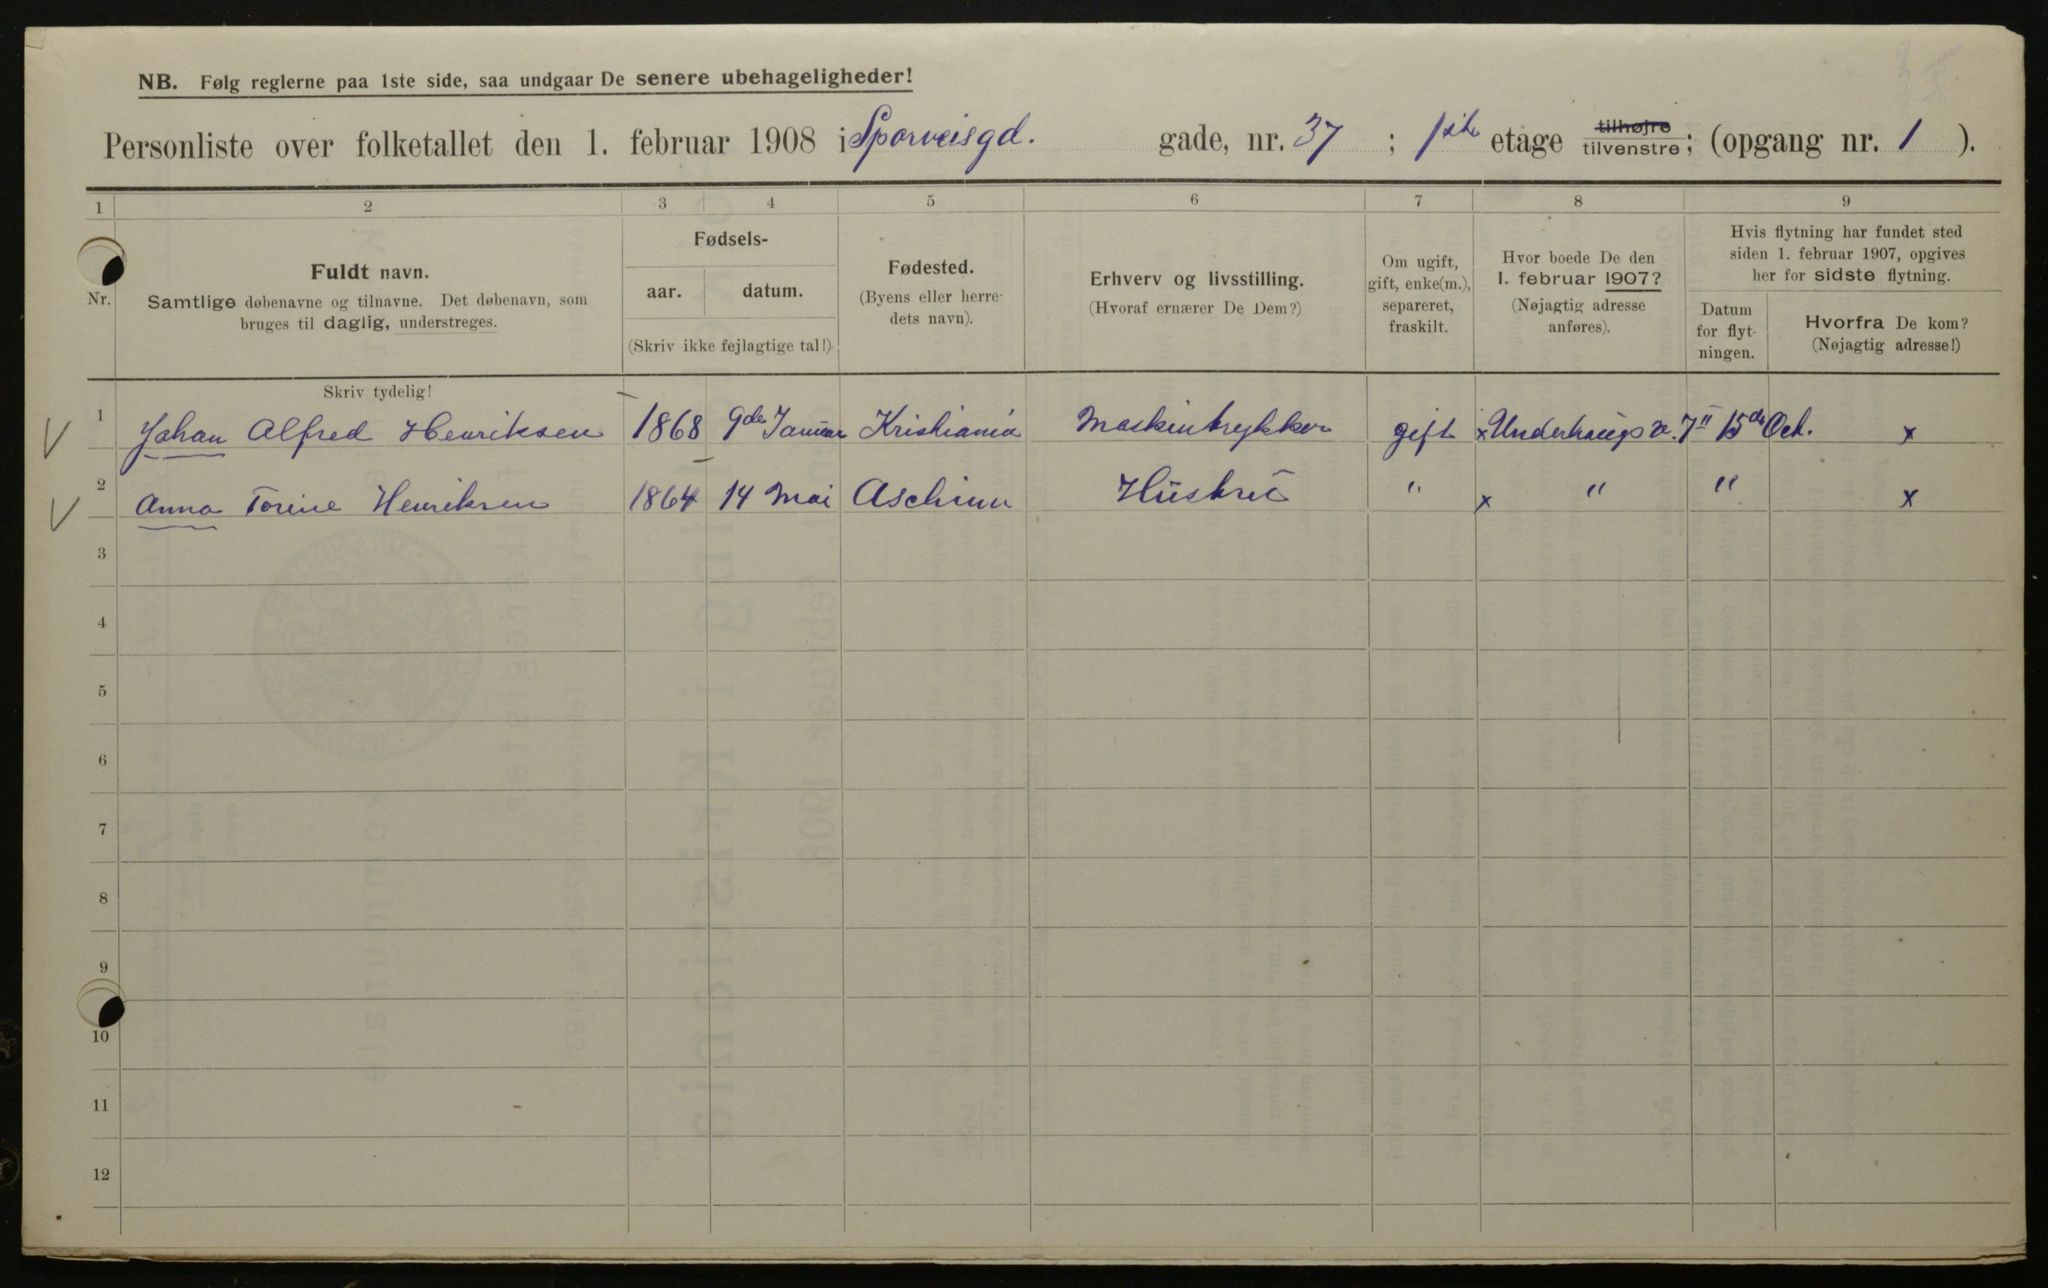 NB. Følg reglerne paa 1ste side, saa undgaar De senere ubehageligheder!
Personliste over folketallet den 1. februar 1908 i Sporveisgd. gade, nr. 37 ; 1ste etage tilhøjre tilvenstre; (opgang nr. 1 ).
1 2 3 4 5 6 7 8 9
Nr.
Fuldt navn.
Samtlige døbenavne og tilnavne. Det døbenavn, som
bruges til daglig, understreges.
Fødsels-
aar. datum.
(Skriv ikke fejlagtige tal!)
Fødested.
(Byens eller herre-
dets navn).
Erhverv og livsstilling.
(Hvoraf ernærer De Dem?)
Om ugift,
gift, enke(m.),
separeret,
fraskilt.
Hvor boede De den
1. februar 1907?
(Nøjagtig adresse
anføres).
Hvis flytning har fundet sted
siden 1. februar 1907, opgives
her for sidste flytning.
Datum
for flyt-
ningen.
Hvorfra De kom?
(Nøjagtig adresse!)
Skriv tydelig!
1 Johan Alfred Henriksen 1868 9de Januar Kristiania Maskintrykker gift x Underhaugs v. 7 II 15de Oct. x
2 Anna Torine Henriksen 1864 14 Mai Aschim Hustru " x " " x
3
4
5
6
7
8
9
10
11
12